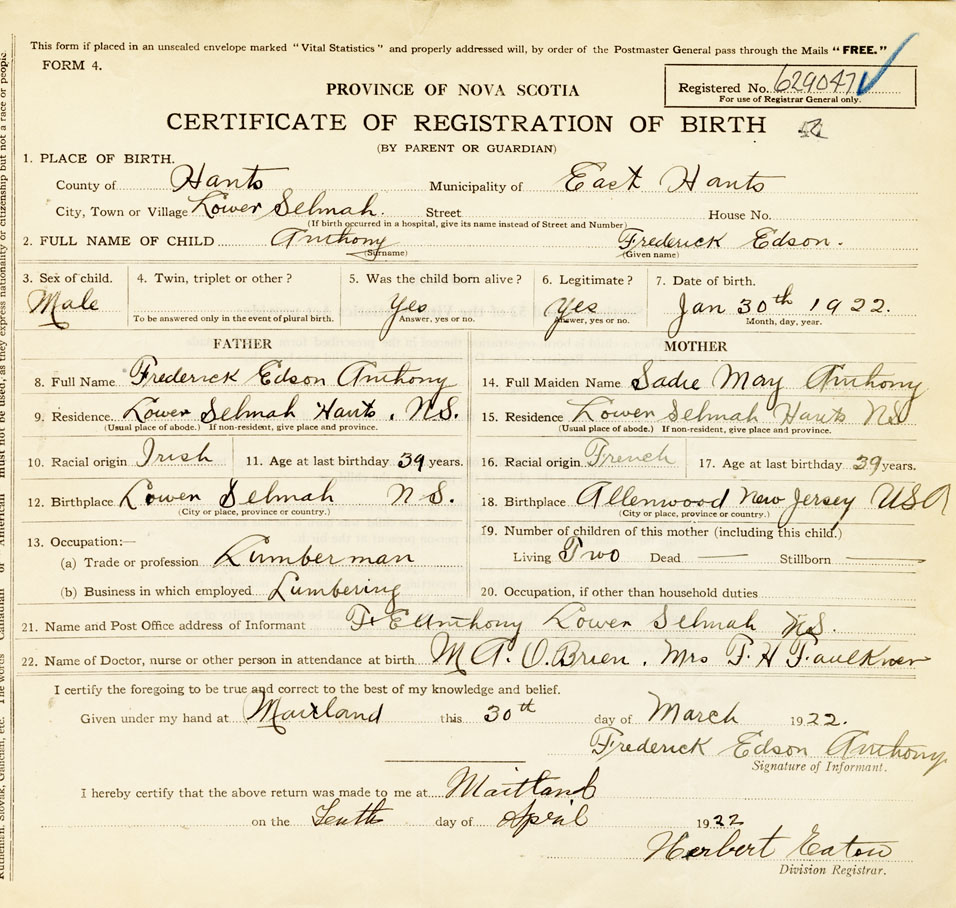 This form if placed in an unsealed envelope marked "Vital Statistics" and properly addressed will, by order of the Postmaster General pass through the Mails "FREE."
FORM 4.
Registered No. 629047
For use of Registrar General only.
PROVINCE OF NOVA SCOTIA
CERTIFICATE OF REGISTRATION OF BIRTH
(BY PARENT OR GUARDIAN)
1. PLACE OF BIRTH.
County of Hants Municipality of East Hants
City, Town or Village Lower Selmah. Street House No.
(If birth occurred in a hospital, give its name instead of Street and Number)
2. FULL NAME OF CHILD Anthony Frederick Edson.
(Surname) (Given name)
3. Sex of child. 4. Twin, triplet or other? 5. Was the child born alive? 6. Legitimate? 7. Date of birth.
Male Yes Yes Jan 30th 1922.
To be answered only in the event of plural birth. Answer, yes or no. Answer, yes or no. Month, day, year.
FATHER MOTHER
8. Full Name Frederick Edson Anthony 14. Full Maiden Name Sadie May Anthony
9. Residence. Lower Selmah Hants. N.S. 15. Residence Lower Selmah Hants NS
(Usual place of abode.) If non-resident, give place and province. (Usual place of abode.) If non-resident, give place and province.
10. Racial origin Irish 11. Age at last birthday 39 years. 16. Racial origin French 17. Age at last birthday 39 years.
12. Birthplace Lower Selmah N.S. 18. Birthplace Allenwood New Jersey USA
(City or place, province or country.) (City or place, province or country.)
13. Occupation:— 19. Number of children of this mother (including this child.)
(a) Trade or profession Lumberman Living Two Dead — Stillborn —
(b) Business in which employed Lumbering 20. Occupation, if other than household duties
21. Name and Post Office address of Informant F E Anthony Lower Selmah N.S.
22. Name of Doctor, nurse or other person in attendance at birth M A. O.Brien. Mrs F. H Faulkner
I certify the foregoing to be true and correct to the best of my knowledge and belief.
Given under my hand at Maitland this 30th day of March 1922.
Frederick Edson Anthony
Signature of Informant.
I hereby certify that the above return was made to me at Maitland
on the Tenth day of April 1922
Herbert Eaton
Division Registrar.
Ruthenian, Slovak, Galician, etc. The words Canadian or American must not be used, as they express nationality or citizenship but not a race or people.